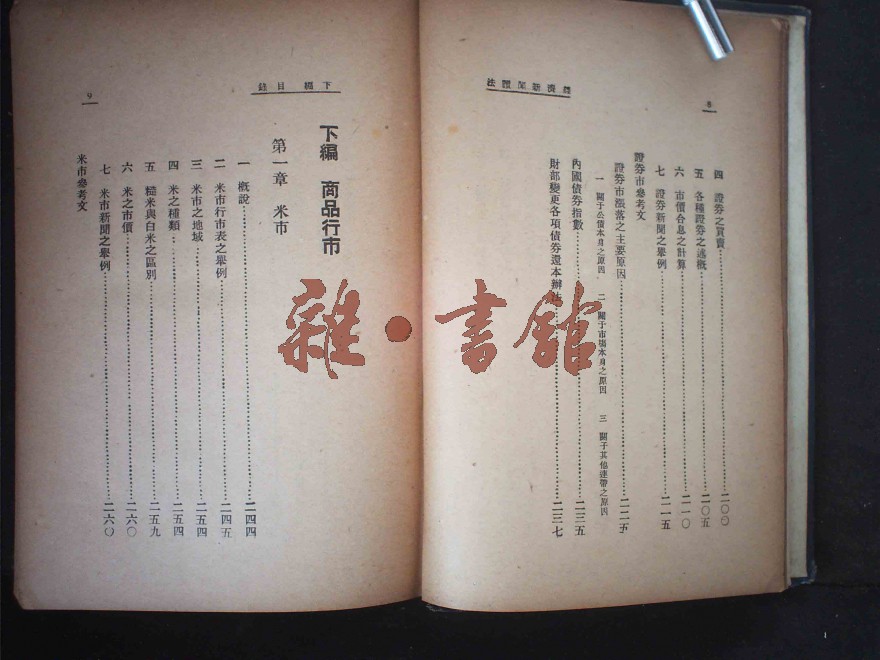 經濟新聞讀法
8
四 證券之買賣……二〇〇
五 各種證券之述概……二〇五
六 市價合息之計算……二一〇
七 證券新聞之舉例……二一五
證券市參考文
證券市漲落之主要原因……二二五
一 關于公債本身之原因 二 關于市場本身之原因 三 關于其他連帶之原因
內國債券指數……二三五
財部變更各項債券還本辦法……二三七
下編 目錄
9
下編 商品行市
第一章 米市
一 概說……二四四
二 米市行市表之舉例……二四五
三 米市之地域……二五四
四 米之種類……二五四
五 糙米與白米之區別……二五九
六 米之市價……二六〇
七 米市新聞之舉例……二六〇
米市參考文
雜·書館